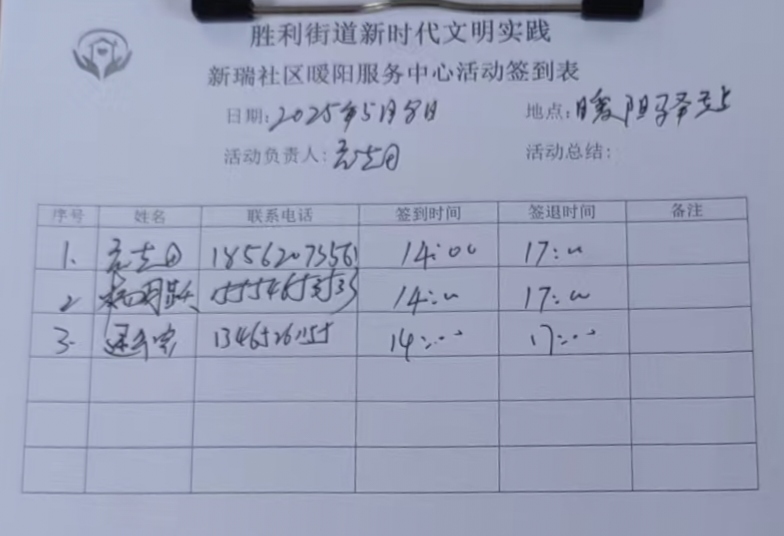 胜利街道新时代文明实践
新瑞社区暖阳服务中心活动签到表
日期:2025年5月8日 地点:暖阳驿站
活动负责人: 活动总结:
序号 姓名 联系电话 签到时间 签退时间 备注
1. 18562073561 14:00 17:00
2 14:00 17:00
3. 13465261155 14:00 17:00